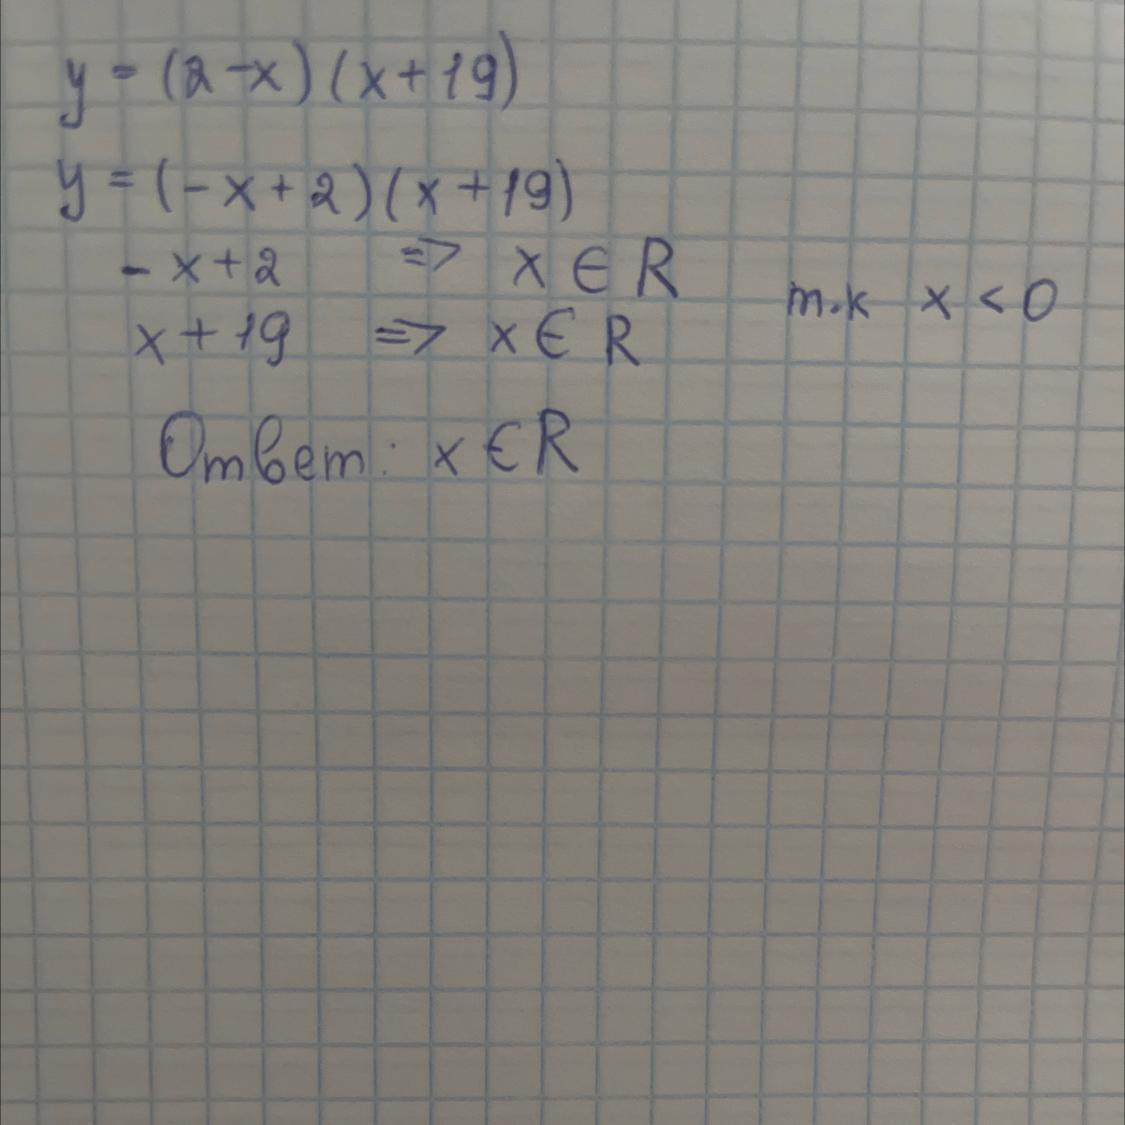 y = (2-x)(x+19)
y = (-x+2)(x+19)
-x+2 => x ∈ R
т.к x < 0
x+19 => x ∈ R
Ответ: x ∈ R